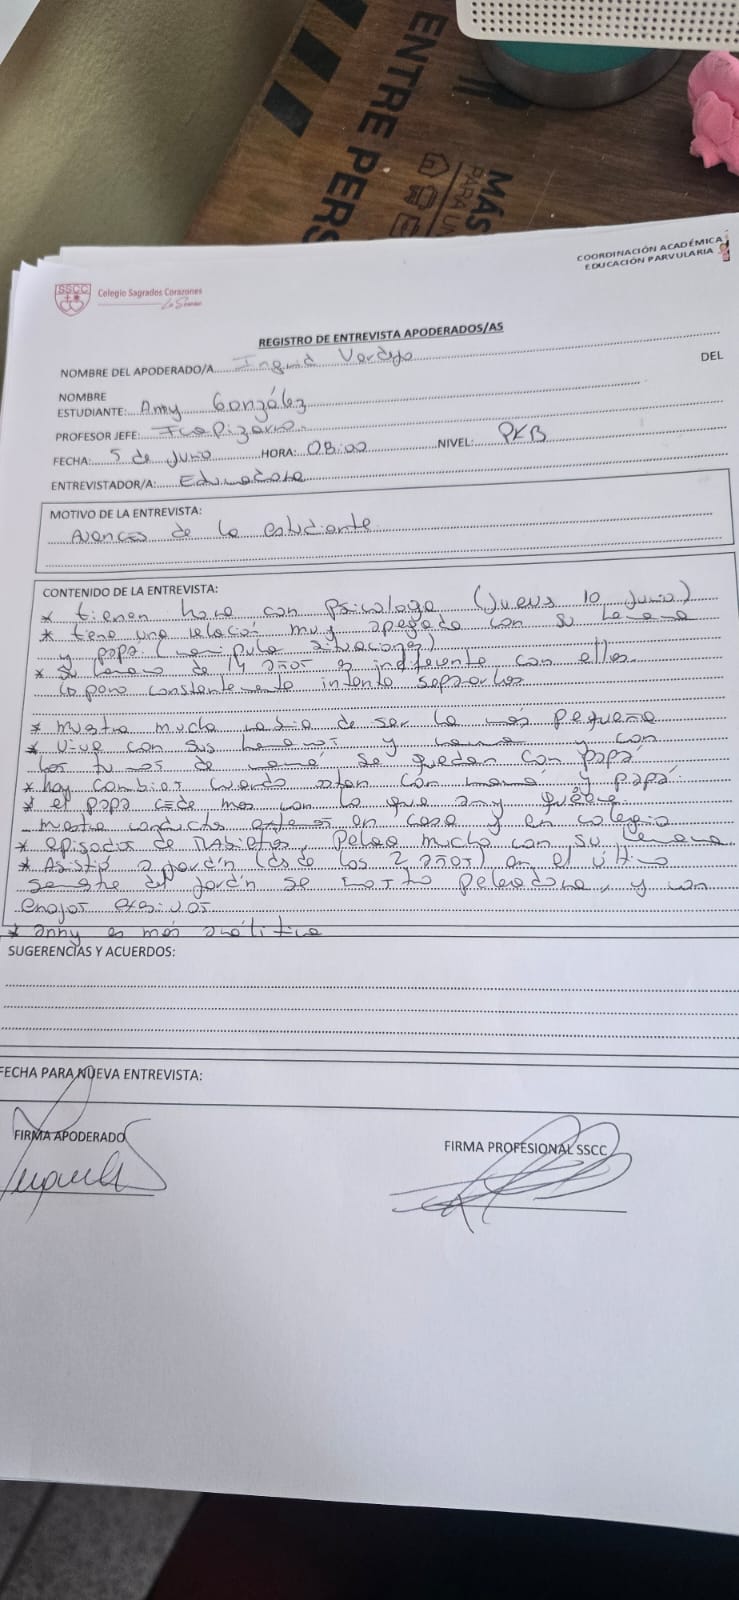 ENTRE PERS
MÁS
PARA UN
COORDINACIÓN ACADÉMICA
EDUCACIÓN PARVULARIA
SSCC
Colegio Sagrados Corazones
La Serena
REGISTRO DE ENTREVISTA APODERADOS/AS
NOMBRE DEL APODERADO/A Ingrid Verdejo DEL
NOMBRE
ESTUDIANTE: Anny González
PROFESOR JEFE: Fca Pizarro.
FECHA: 5 de Junio HORA: 08:00 NIVEL: PKB
ENTREVISTADOR/A: Educadora
MOTIVO DE LA ENTREVISTA:
Avances de la estudiante
CONTENIDO DE LA ENTREVISTA:
* tienen hora con Psicologo (Jueves 10 Junio)
* tiene una relación muy apegada con su hermana
y papá. (manipula situaciones)
* Su hermano de 14 años es indiferente con ellas.
pero constantemente intenta separarlos
* muestra mucha rabia de ser la más pequeña
* Vive con sus hermanos y mamá y con
los turnos de mamá se quedan con papá
* hay cambios cuando están con mamá y papá.
* el papá cede mas con lo que anny quiere
muestra conductas en casa y en colegio
* episodios de rabietas, pelea mucho con su hermana
* Asistió a jardín (desde los 2 años) en el último
semestre del jardín se mostró peleadora, y con
enojos
* anny es más analítica
SUGERENCIAS Y ACUERDOS:
FECHA PARA NUEVA ENTREVISTA:
FIRMA APODERADO
FIRMA PROFESIONAL SSCC